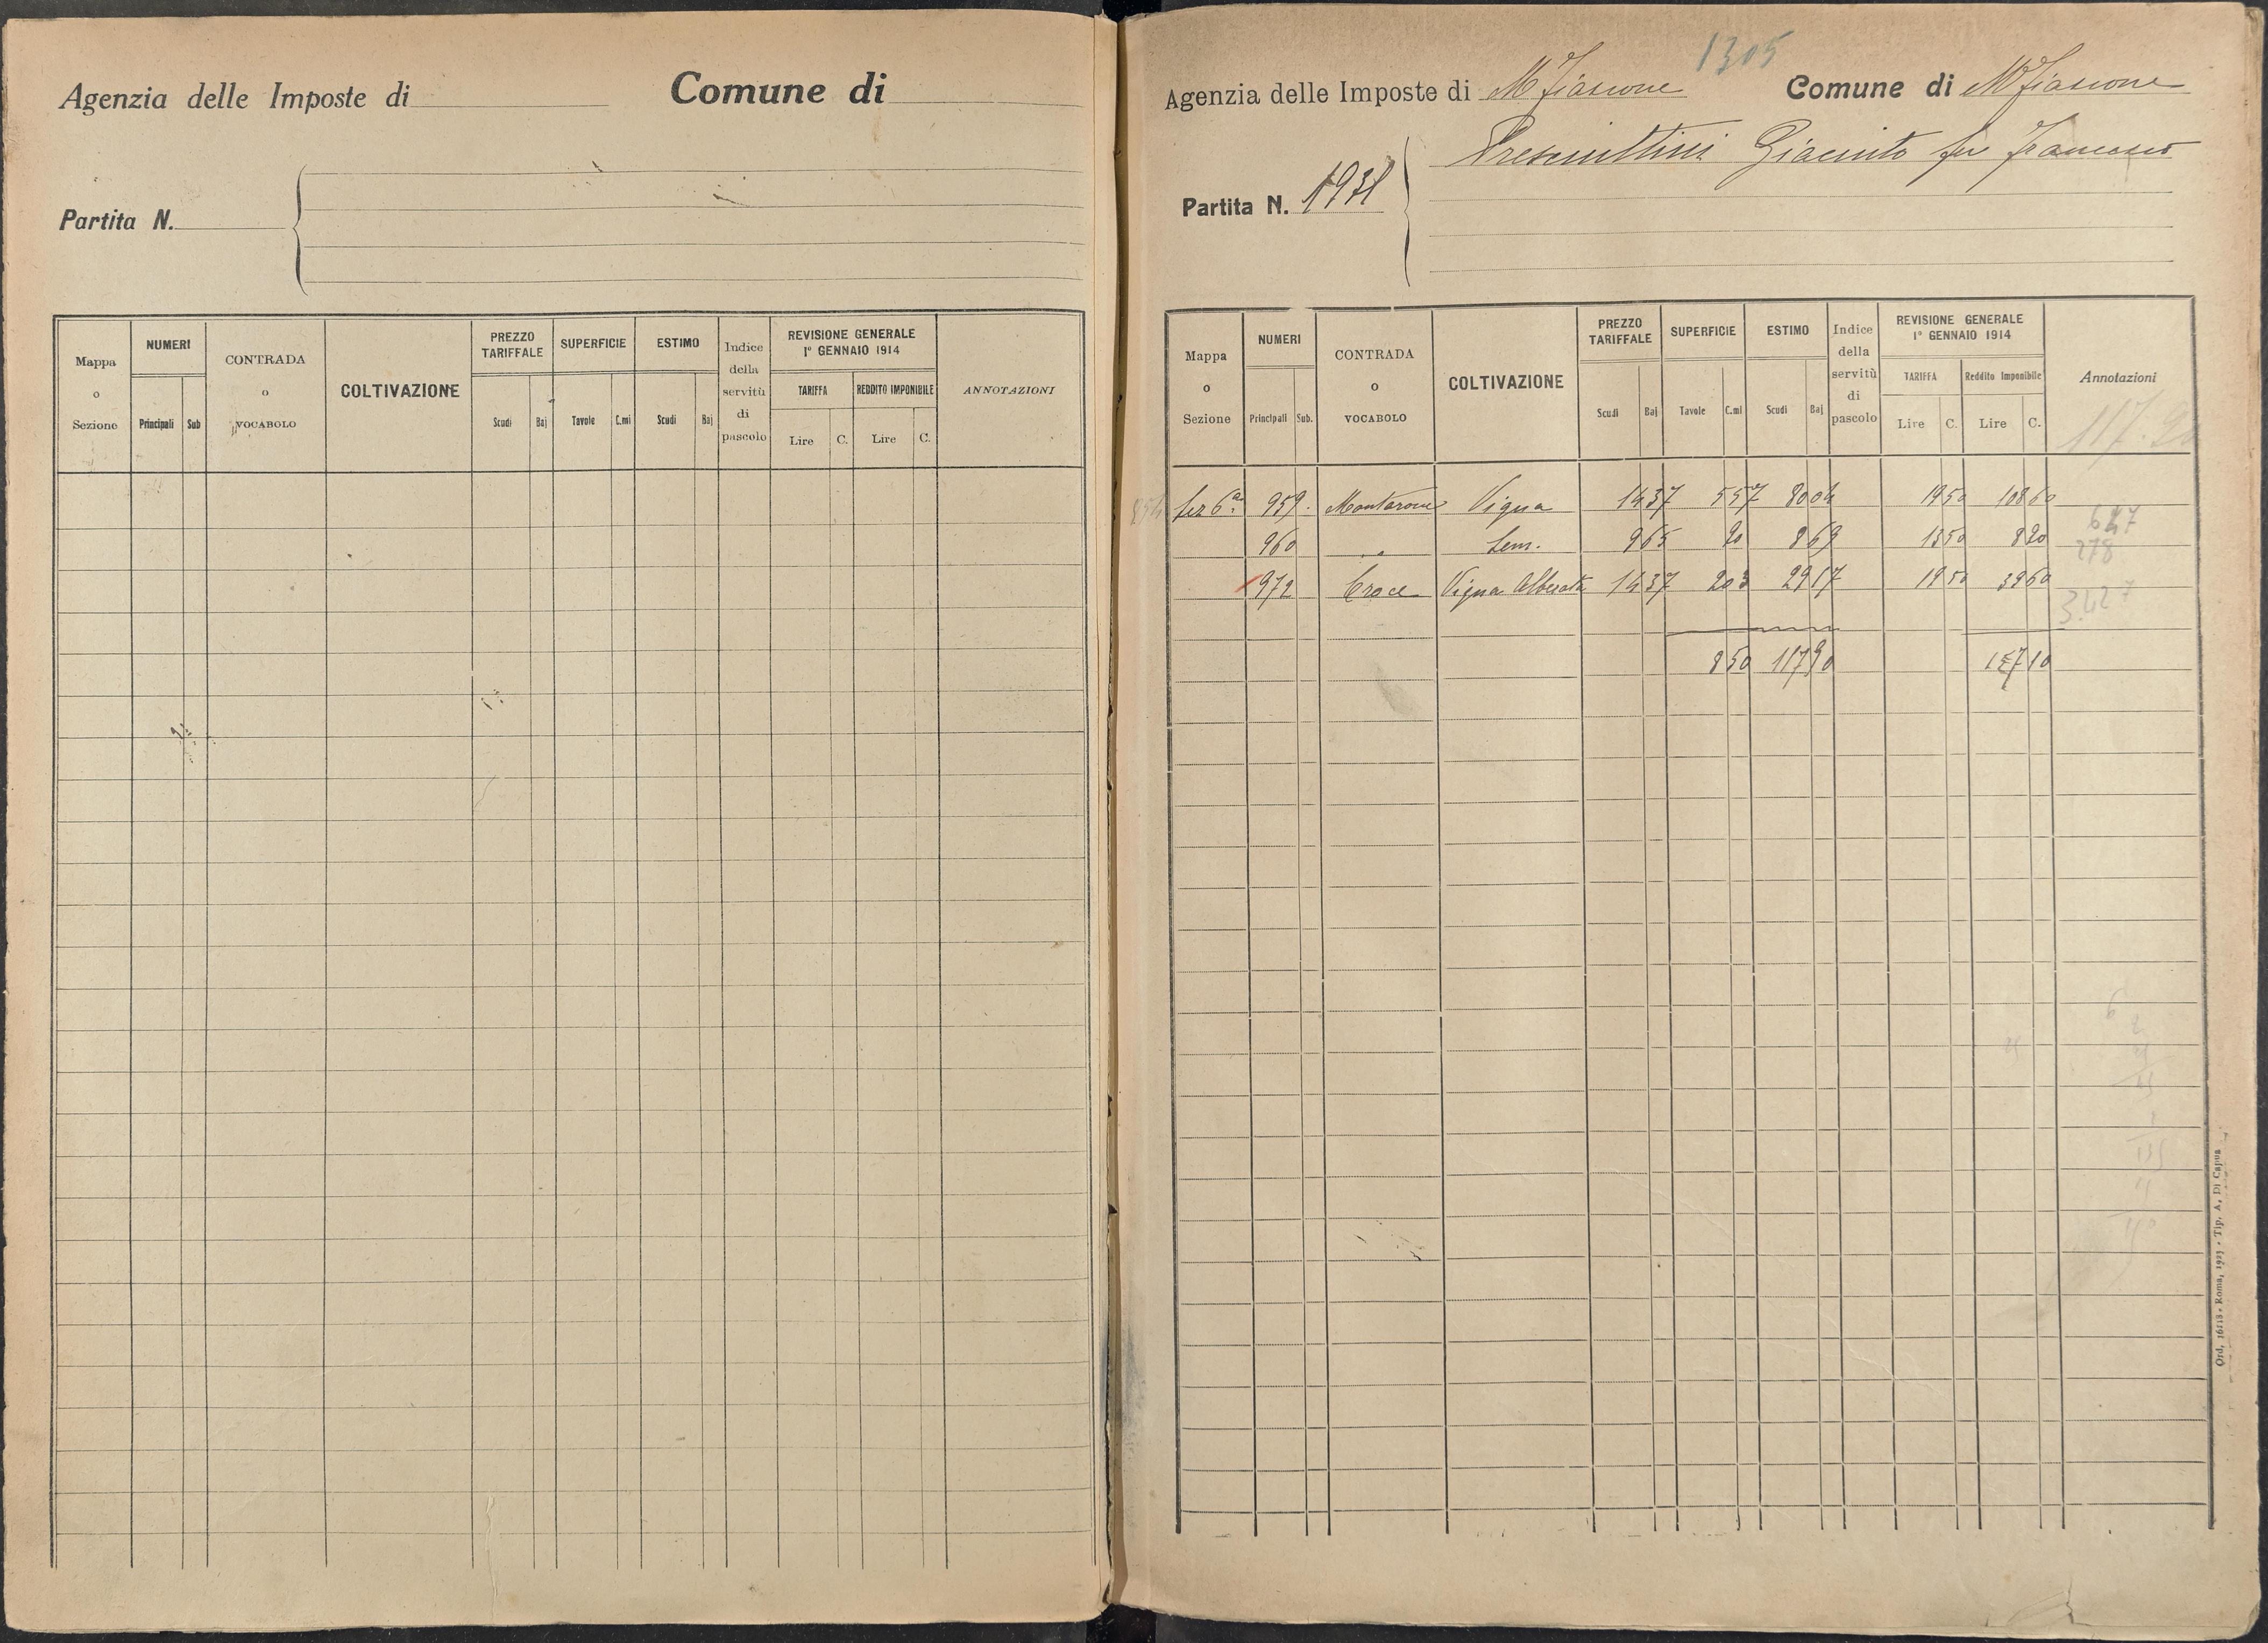 Agenzia delle Imposte di Comune di
Partita N.
Mappa o Sezione NUMERI CONTRADA o VOCABOLO COLTIVAZIONE PREZZO TARIFFALE SUPERFICIE ESTIMO Indice della servitù di pascolo REVISIONE GENERALE 1º GENNAIO 1914 ANNOTAZIONI
TARIFFA REDDITO IMPONIBILE
Principali Sub Scudi Baj Tavole C.mi Scudi Baj Lire C. Lire C.
1305
Agenzia delle Imposte di M Fiascone Comune di M Fiascone
Presciuttini Giacinto fu Francesco
Partita N. 1931
Mappa o Sezione NUMERI CONTRADA o VOCABOLO COLTIVAZIONE PREZZO TARIFFALE SUPERFICIE ESTIMO Indice della servitù di pascolo REVISIONE GENERALE 1º GENNAIO 1914 Annotazioni
TARIFFA Reddito Imponibile
Principali Sub. Scudi Baj Tavole C.mi Scudi Baj Lire C. Lire C.
117.90
Sez 6a. 959. Montarone Vigna 14 37 5 57 80 04 19 50 108 60
647
960 " Sem. 9 65 90 8 69 13 50 8 90
278
972 Croce Vigna Alberata 14 37 2 03 29 17 19 50 39 60
3.427
8 50 117 90 157 10
Ord. 16118 - Roma, 1923 - Tip. A. Di Capua